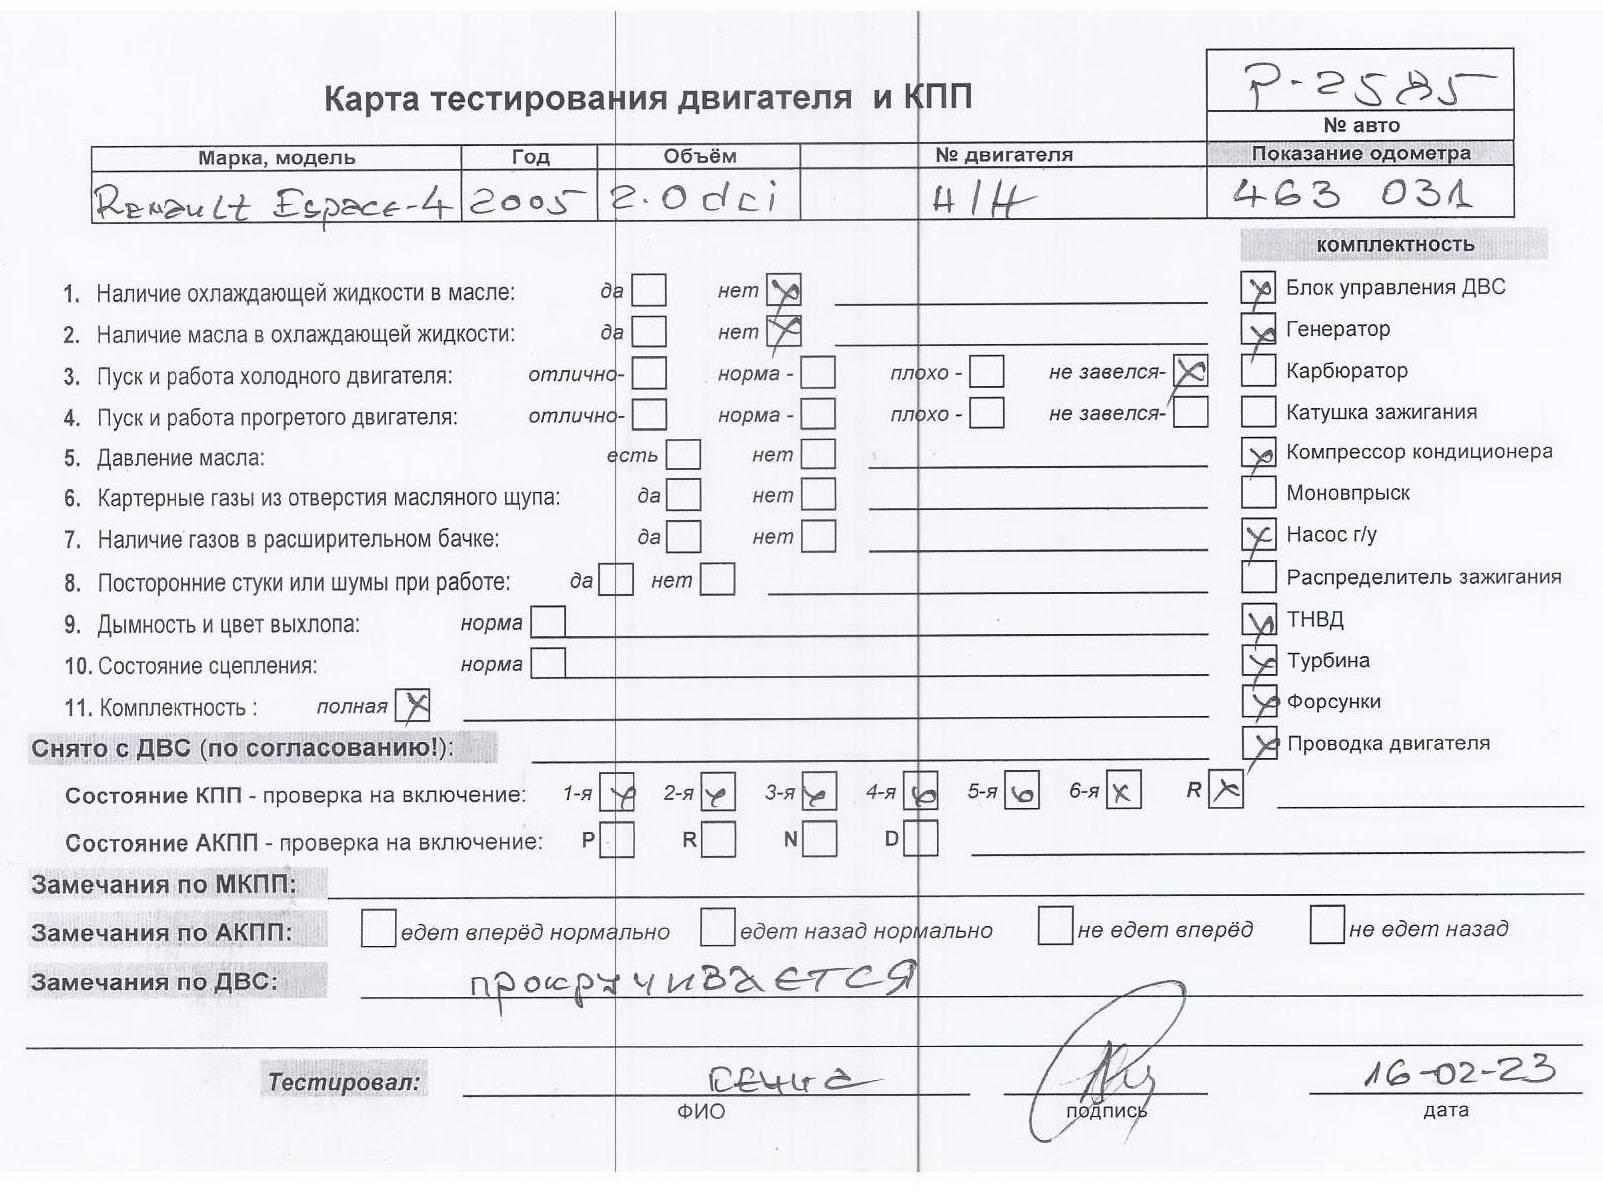 P-2585
Карта тестирования двигателя и КПП
№ авто
Марка, модель Год Объём № двигателя Показание одометра
Renault Espace-4 2005 2.0 dci 463 031
комплектность
1. Наличие охлаждающей жидкости в масле: да нет
Блок управления ДВС
2. Наличие масла в охлаждающей жидкости: да нет
Генератор
3. Пуск и работа холодного двигателя: отлично- норма - плохо - не завелся-
Карбюратор
4. Пуск и работа прогретого двигателя: отлично- норма - плохо - не завелся-
Катушка зажигания
5. Давление масла: есть нет
Компрессор кондиционера
6. Картерные газы из отверстия масляного щупа: да нет
Моновпрыск
7. Наличие газов в расширительном бачке: да нет
Насос г/у
8. Посторонние стуки или шумы при работе: да нет
Распределитель зажигания
9. Дымность и цвет выхлопа: норма
ТНВД
10. Состояние сцепления: норма
Турбина
11. Комплектность : полная
Форсунки
Снято с ДВС (по согласованию!):
Проводка двигателя
Состояние КПП - проверка на включение: 1-я 2-я 3-я 4-я 5-я 6-я R
Состояние АКПП - проверка на включение: P R N D
Замечания по МКПП:
Замечания по АКПП: едет вперёд нормально едет назад нормально не едет вперёд не едет назад
Замечания по ДВС: прокручивается
Тестировал: 16-02-23
ФИО подпись дата